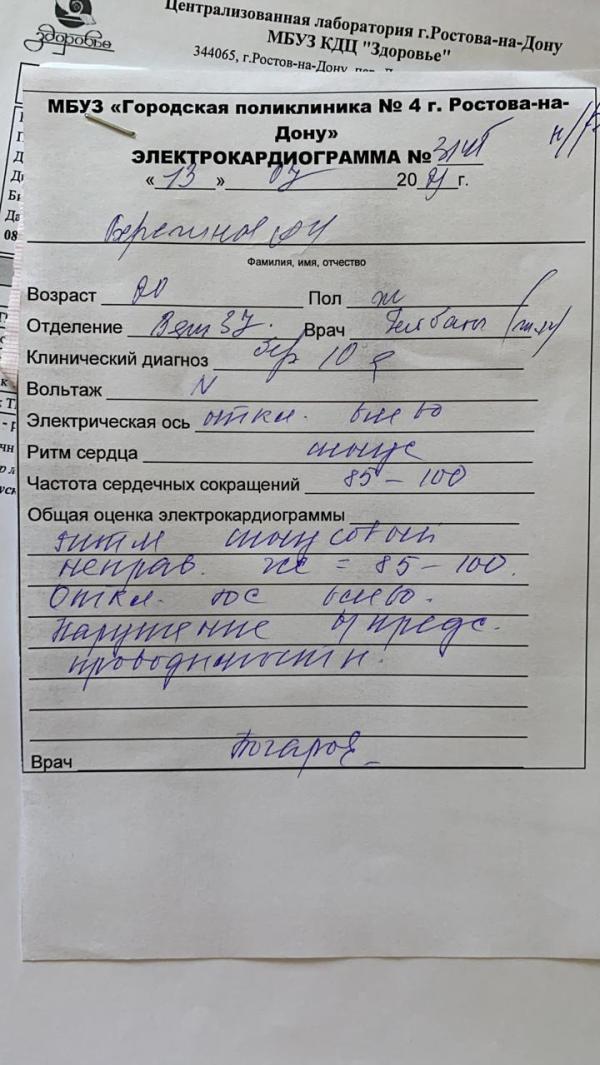 здоровье
Централизованная лаборатория г.Ростова-на-Дону
МБУЗ КДЦ "Здоровье"
344065, г.Ростов-на-Дону, пер.
МБУЗ «Городская поликлиника № 4 г. Ростова-на-
Дону»
ЭЛЕКТРОКАРДИОГРАММА №
« 13 » 07 20 21 г.
Фамилия, имя, отчество
Возраст 20 Пол ж
Отделение Врач
Клинический диагноз
Вольтаж N
Электрическая ось откл. влево
Ритм сердца синус
Частота сердечных сокращений 85-100
Общая оценка электрокардиограммы
ритм синусовый
неправ. чсс = 85-100.
Откл. эос влево.
Нарушение в/предс.
проводимости.
Врач
08